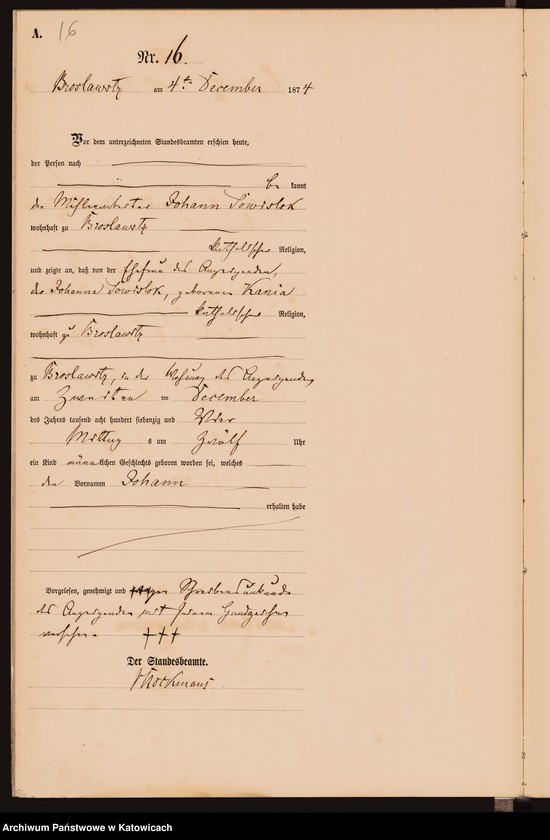 A. 16
Nr. 16.
Broslawitz am 4ten December 1874
Vor dem unterzeichneten Standesbeamten erschien heute,
der Person nach
be kannt
der Johann Sowislok
wohnhaft zu Broslawitz
katholischer Religion,
und zeigte an, daß von der Ehefrau des Anzeigenden,
der Johanna Sowislok, geborenen Kania
katholischer Religion,
wohnhaft zu Broslawitz
zu Broslawitz, in der Wohnung des Anzeigenden
am Zweiten ten December
des Jahres tausend acht hundert siebenzig und Vier
Mittag s um Zwölf Uhr
ein Kind männlichen Geschlechts geboren worden sei, welches
den Vornamen Johann
erhalten habe
Vorgelesen, genehmigt und wegen Schreibensunkunde
des Anzeigenden mit seinem Handzeichen
versehen. +++
Der Standesbeamte.
Archiwum Państwowe w Katowicach